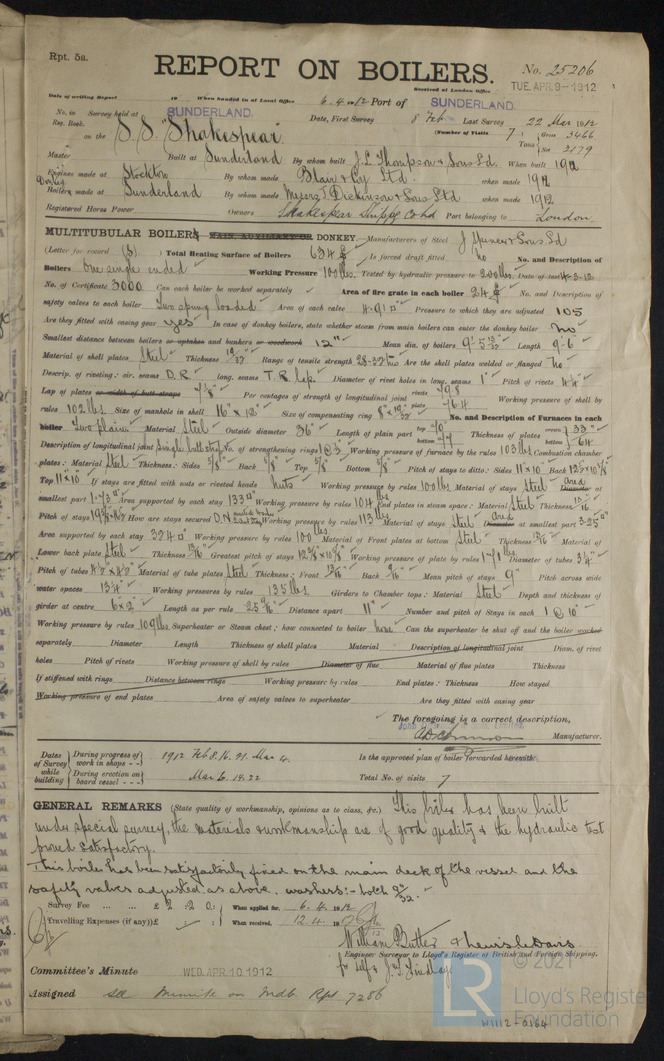 Rpt. 5a.
REPORT ON BOILERS.
No. 25206
Received at London Office
TUE. APR. 9-1912
Date of writing Report 19 When handed in at Local Office 6.4.1912 Port of SUNDERLAND.
No. in Survey held at SUNDERLAND. Date, First Survey 8 Feb Last Survey 22 Mar 1912
Reg. Book. (Number of Visits 7) Gross 3466
on the S.S. "Shakespear" Tons Net 2179
Master Built at Sunderland By whom built J. L. Thompson & Sons Ld. When built 1912
Engines made at Stockton By whom made Blair & Coy Ltd. when made 1912
Donkey Boilers made at Sunderland By whom made Messrs J. Dickinson & Sons Ltd when made 1912
Registered Horse Power Owners Shakespear Shippg Co Ld Port belonging to London
MULTITUBULAR BOILERS MAIN, AUXILIARY OR DONKEY.—Manufacturers of Steel J. Spencer & Sons Ld
(Letter for record (S)) Total Heating Surface of Boilers 634 Is forced draft fitted no No. and Description of
Boilers One single ended Working Pressure 100 lbs. Tested by hydraulic pressure to 200 lbs. Date of test 4-3-12
No. of Certificate 3000 Can each boiler be worked separately Area of fire grate in each boiler 24 No. and Description of
safety valves to each boiler Two spring loaded Area of each valve 4.91 Pressure to which they are adjusted 105
Are they fitted with easing gear yes In case of donkey boilers, state whether steam from main boilers can enter the donkey boiler no
Smallest distance between boilers or uptakes and bunkers or woodwork 12" Mean dia. of boilers 9'-5 Length 9'-6"
Material of shell plates Steel Thickness Range of tensile strength 28-32 tons Are the shell plates welded or flanged no
Descrip. of riveting: cir. seams D.R. long. seams T.R. lap Diameter of rivet holes in long. seams 1" Pitch of rivets
Lap of plates or width of butt straps 7 Per centages of strength of longitudinal joint rivets 79.8 plate 76.4 Working pressure of shell by
rules 102 lbs Size of manhole in shell 16" x 12" Size of compensating ring No. and Description of Furnaces in each
boiler Two plain Material Steel Outside diameter 36" Length of plain part top 70" bottom 77 Thickness of plates crown 33 bottom 64
Description of longitudinal joint No. of strengthening rings Working pressure of furnace by the rules 103 lbs Combustion chamber
plates: Material Steel Thickness: Sides 5/8" Back 5/8" Top 5/8" Bottom 5/8" Pitch of stays to ditto: Sides 11 x 10 Back
Top 11" x 10 If stays are fitted with nuts or riveted heads Nuts Working pressure by rules 100 lbs Material of stays Steel Diameter at
smallest part 1.73 Area supported by each stay 133 Working pressure by rules 104 lbs End plates in steam space: Material Steel Thickness
Pitch of stays How are stays secured D.N. Working pressure by rules 113 lbs Material of stays Steel Diameter at smallest part 3.25
Area supported by each stay 324 Working pressure by rules 100 lbs Material of Front plates at bottom Steel Thickness 13/16 Material of
Lower back plate Steel Thickness 13/16 Greatest pitch of stays Working pressure of plate by rules Diameter of tubes 3 1/4"
Pitch of tubes Material of tube plates Steel Thickness: Front 13/16 Back 9/16 Mean pitch of stays 9" Pitch across wide
water spaces 13 Working pressures by rules 135 lbs Girders to Chamber tops: Material Steel Depth and thickness of
girder at centre 6 x 2" Length as per rule 25 Distance apart 11" Number and pitch of Stays in each 1 @ 10"
Working pressure by rules 109 lbs Superheater or Steam chest; how connected to boiler none Can the superheater be shut off and the boiler worked
separately Diameter Length Thickness of shell plates Material Description of longitudinal joint Diam. of rivet
holes Pitch of rivets Working pressure of shell by rules Diameter of flue Material of flue plates Thickness
If stiffened with rings Distance between rings Working pressure by rules End plates: Thickness How stayed
Working pressure of end plates Area of safety valves to superheater Are they fitted with easing gear
The foregoing is a correct description,
Manufacturer.
Dates of Survey while building During progress of work in shops 1912 Feb 8. 16. 21. Mar 4. Is the approved plan of boiler forwarded herewith
During erection on board vessel Mar 6. 14. 22 Total No. of visits 7
GENERAL REMARKS (State quality of workmanship, opinions as to class, &c.) This boiler has been built
under special survey, the materials & workmanship are of good quality & the hydraulic test
proved satisfactory.
This boiler has been satisfactorily fixed on the main deck of the vessel and the
safety valves adjusted as above. washers:- both 9/32"
Survey Fee £ 2 : 2 : 0 When applied for, 6.4.1912
Travelling Expenses (if any) £ When received, 12.4.1912
William Butler & Lewis Davis
Engineer Surveyor to Lloyd's Register of British and Foreign Shipping.
for self & J. T. Findlay
Committee's Minute WED. APR. 10. 1912
Assigned See Minute on Mdb Rpt. 7266
© 2021
LR
Lloyd's Register
Foundation
W1112-0164